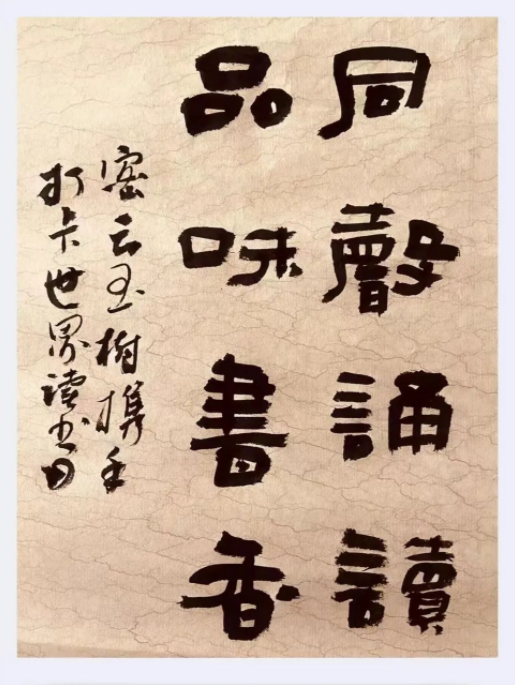 同聲誦讀
品味書香
密云玉樹携手
打卡世界读书日